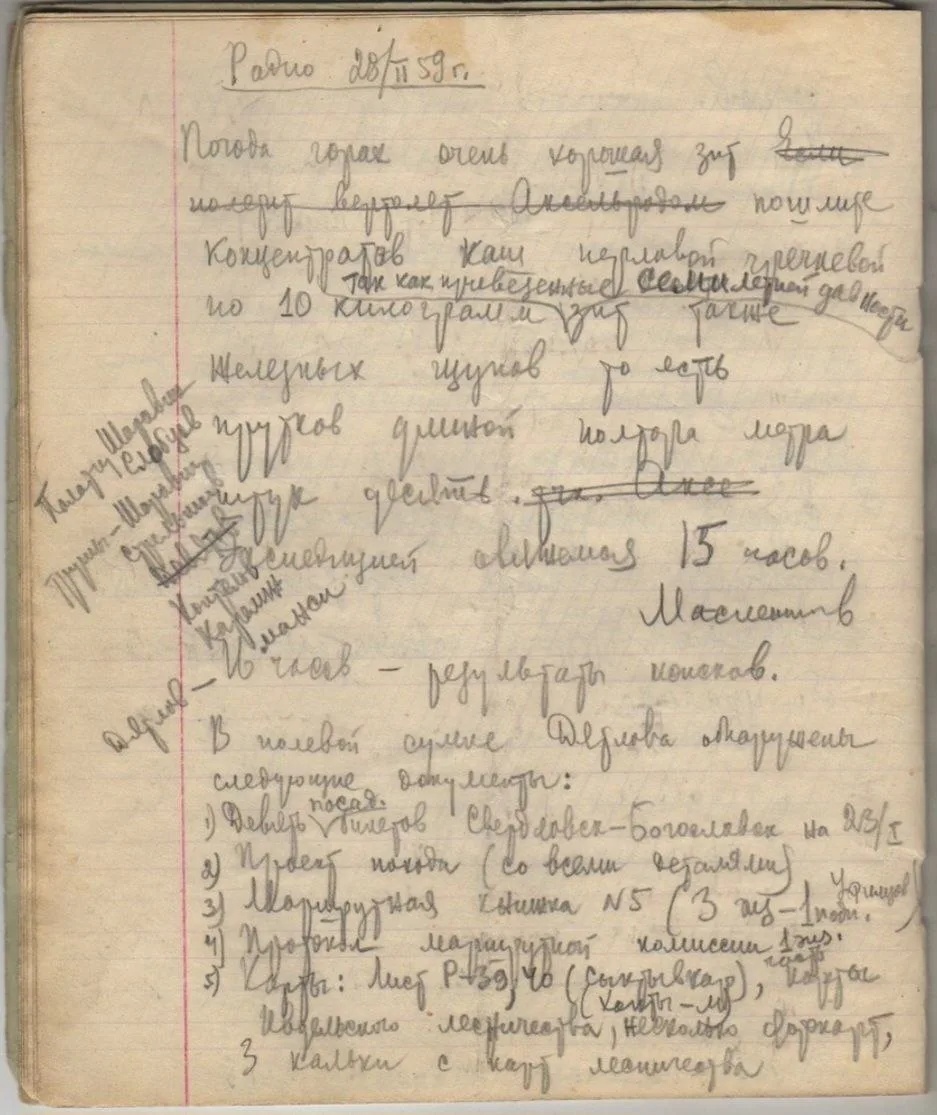 Радио 28/II 59 г.
Погода горах очень хорошая зпт Если
полетит вертолет Аксельродом пошлите
концентратов каш перловой гречневой
так как привезенные семилетней давности
по 10 килограмм зпт также
железных щупов то есть
прутков длиной полтора метра
штук десять. Аксе
следующей свяжемся 15 часов.
Масленников
Палатку Шаравин
Слобцов
Трупы – Шаравин
Коптелов
манси
Дятлов –
16 часов – результаты поисков.
В полевой сумке Дятлова обнаружены
следующие документы:
1) Девять посад. билетов Свердловск–Богословск на 23/I
2) Проект похода (со всеми деталями)
3) Маршрутная книжка N5 (3 экз – 1 подп. Уфимцев)
4) Протокол маршрутной комиссии 1 экз.
5) Карты: Лист Р–39, 40 (Сыктывкар), карты
(Ханты–М)
Ивдельского лесничества, несколько фотокарт,
3 кальки с карт лесничества